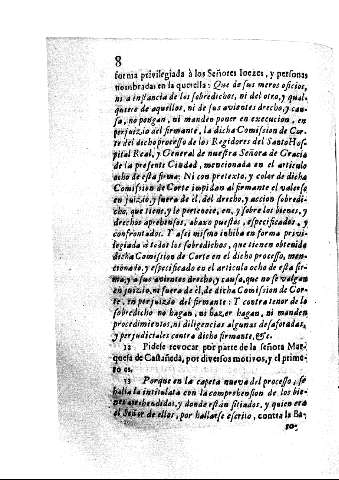 8
forma privilegiada à los Señores Iuezes, y personas
nombradas en la querella: Que de sus meros oficios,
ni a instancia de los sobredichos, ni del otro, y qual-
quiere de aquellos, ni de sus avientes drecho, y cau-
sa, no pongan, ni manden poner en execucion, en
perjuizio del firmante, la dicha Comission de Cor-
te del dicho processo de los Regidores del Santo Hos-
pital Real, y General de nuestra Señora de Gracia
de la presente Ciudad, mencionada en el articulo
ocho de esta firma: Ni con pretexto, y color de dicha
Comission de Corte impidan al firmante el valerse
en juizio, y fuera de èl, del drecho, y accion sobredi-
cho, que tiene, y le pertenece, en, y sobre los bienes, y
drechos aprehensos, abaxo puestos, especificados, y
confrontados. Y assi mismo inhiba en forma privi-
legiada à todos los sobredichos, que tienen obtenida
dicha Comission de Corte en el dicho processo, men-
cionado, y especificado en el articulo ocho de esta fir-
ma, y a sus avientes drecho, y causa, que no se valgan
en juizio, ni fuera de èl, de dicha Comission de Cor-
te, en perjuizio del firmante: Y contra tenor de lo
sobredicho no hagan, ni hazer hagan, ni manden
procedimientos, ni diligencias algunas desaforadas,
y perjudiciales contra dicho firmante, &c.
12 Pidese revocar por parte de la señora Mar-
quesa de Castañeda, por diversos motivos, y el prime-
ro es.
13 Porque en la carpeta nueva del processo, se
halla intitulata con la comprehension de los bie-
nes aprehendidos, y donde estàn sitiados, y quien era
el Señor de ellos, por hallarse escrito, contra la Ba-
ro-